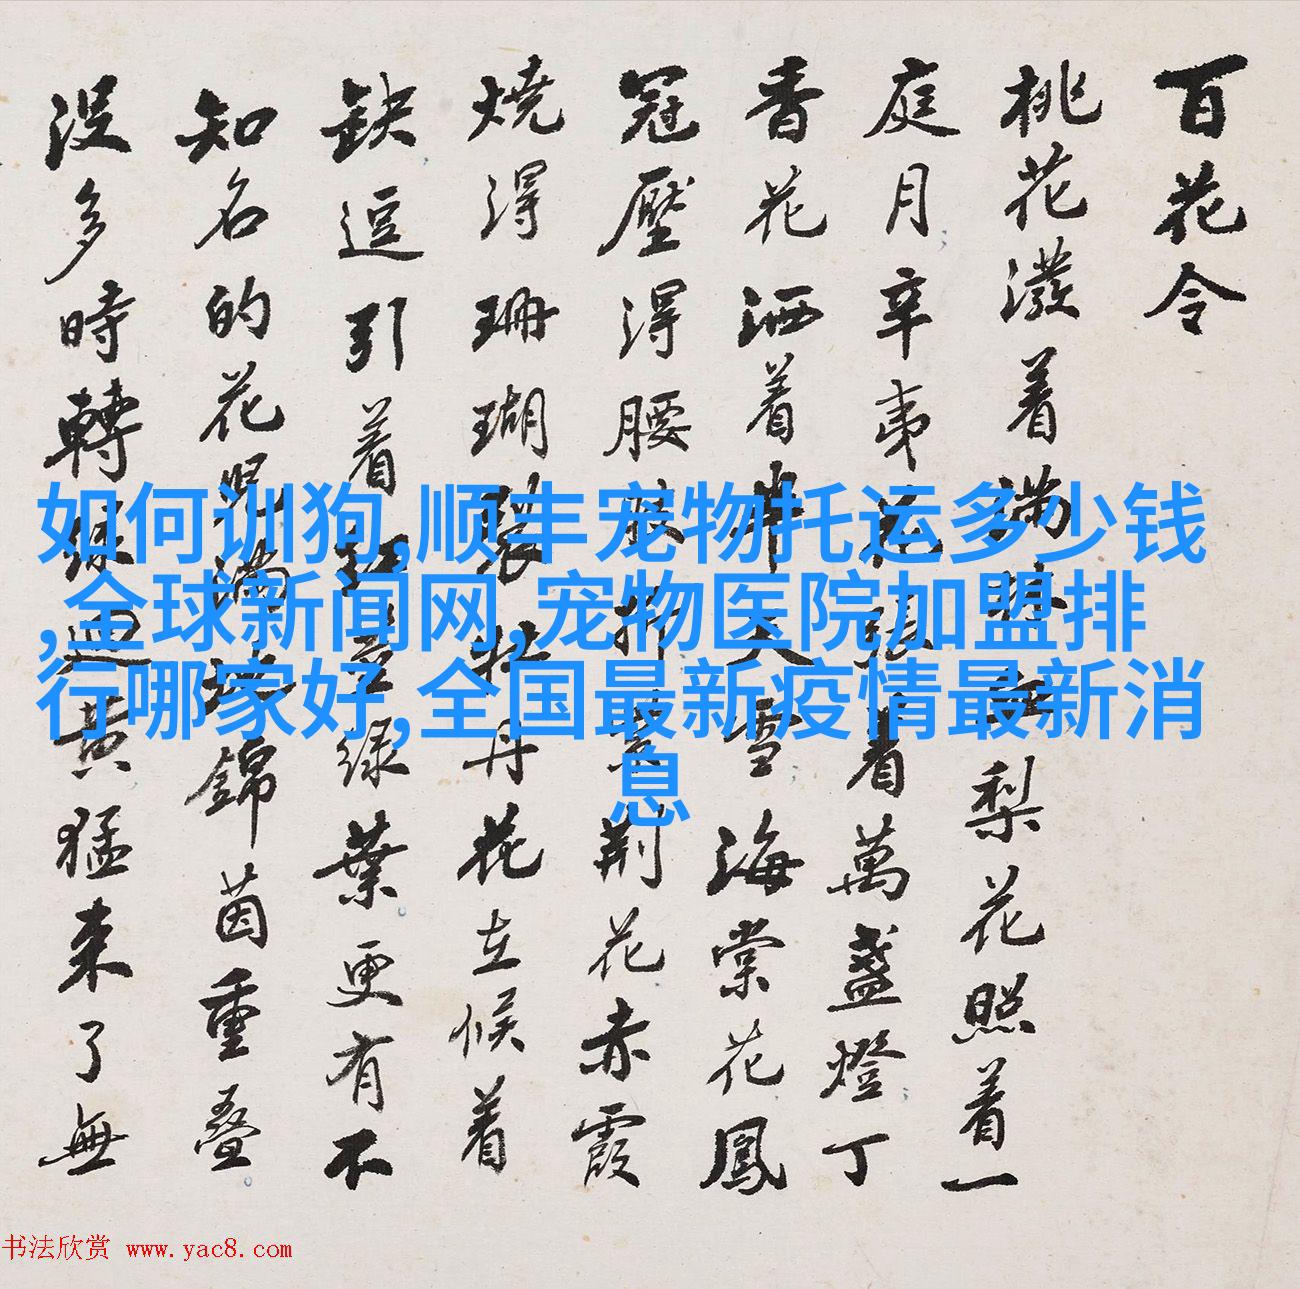 百花令
桃花潑着满林梨花照着一
庭月辛夷花張着萬盞燈丁
香花洒着半天雪海棠花鳳
冠壓得腰肢折紫荆花赤霞
燒得珊瑚裂牡丹花立候着
缺逗引着紅绿葉更有不
知名的花兒满地錦茵重叠
没多時轉緑迴黄猛来了無
如何训狗,顺丰宠物托运多少钱
,全球新闻网,宠物医院加盟排
行哪家好,全国最新疫情最新消
息
书法欣赏 www.yac8.com